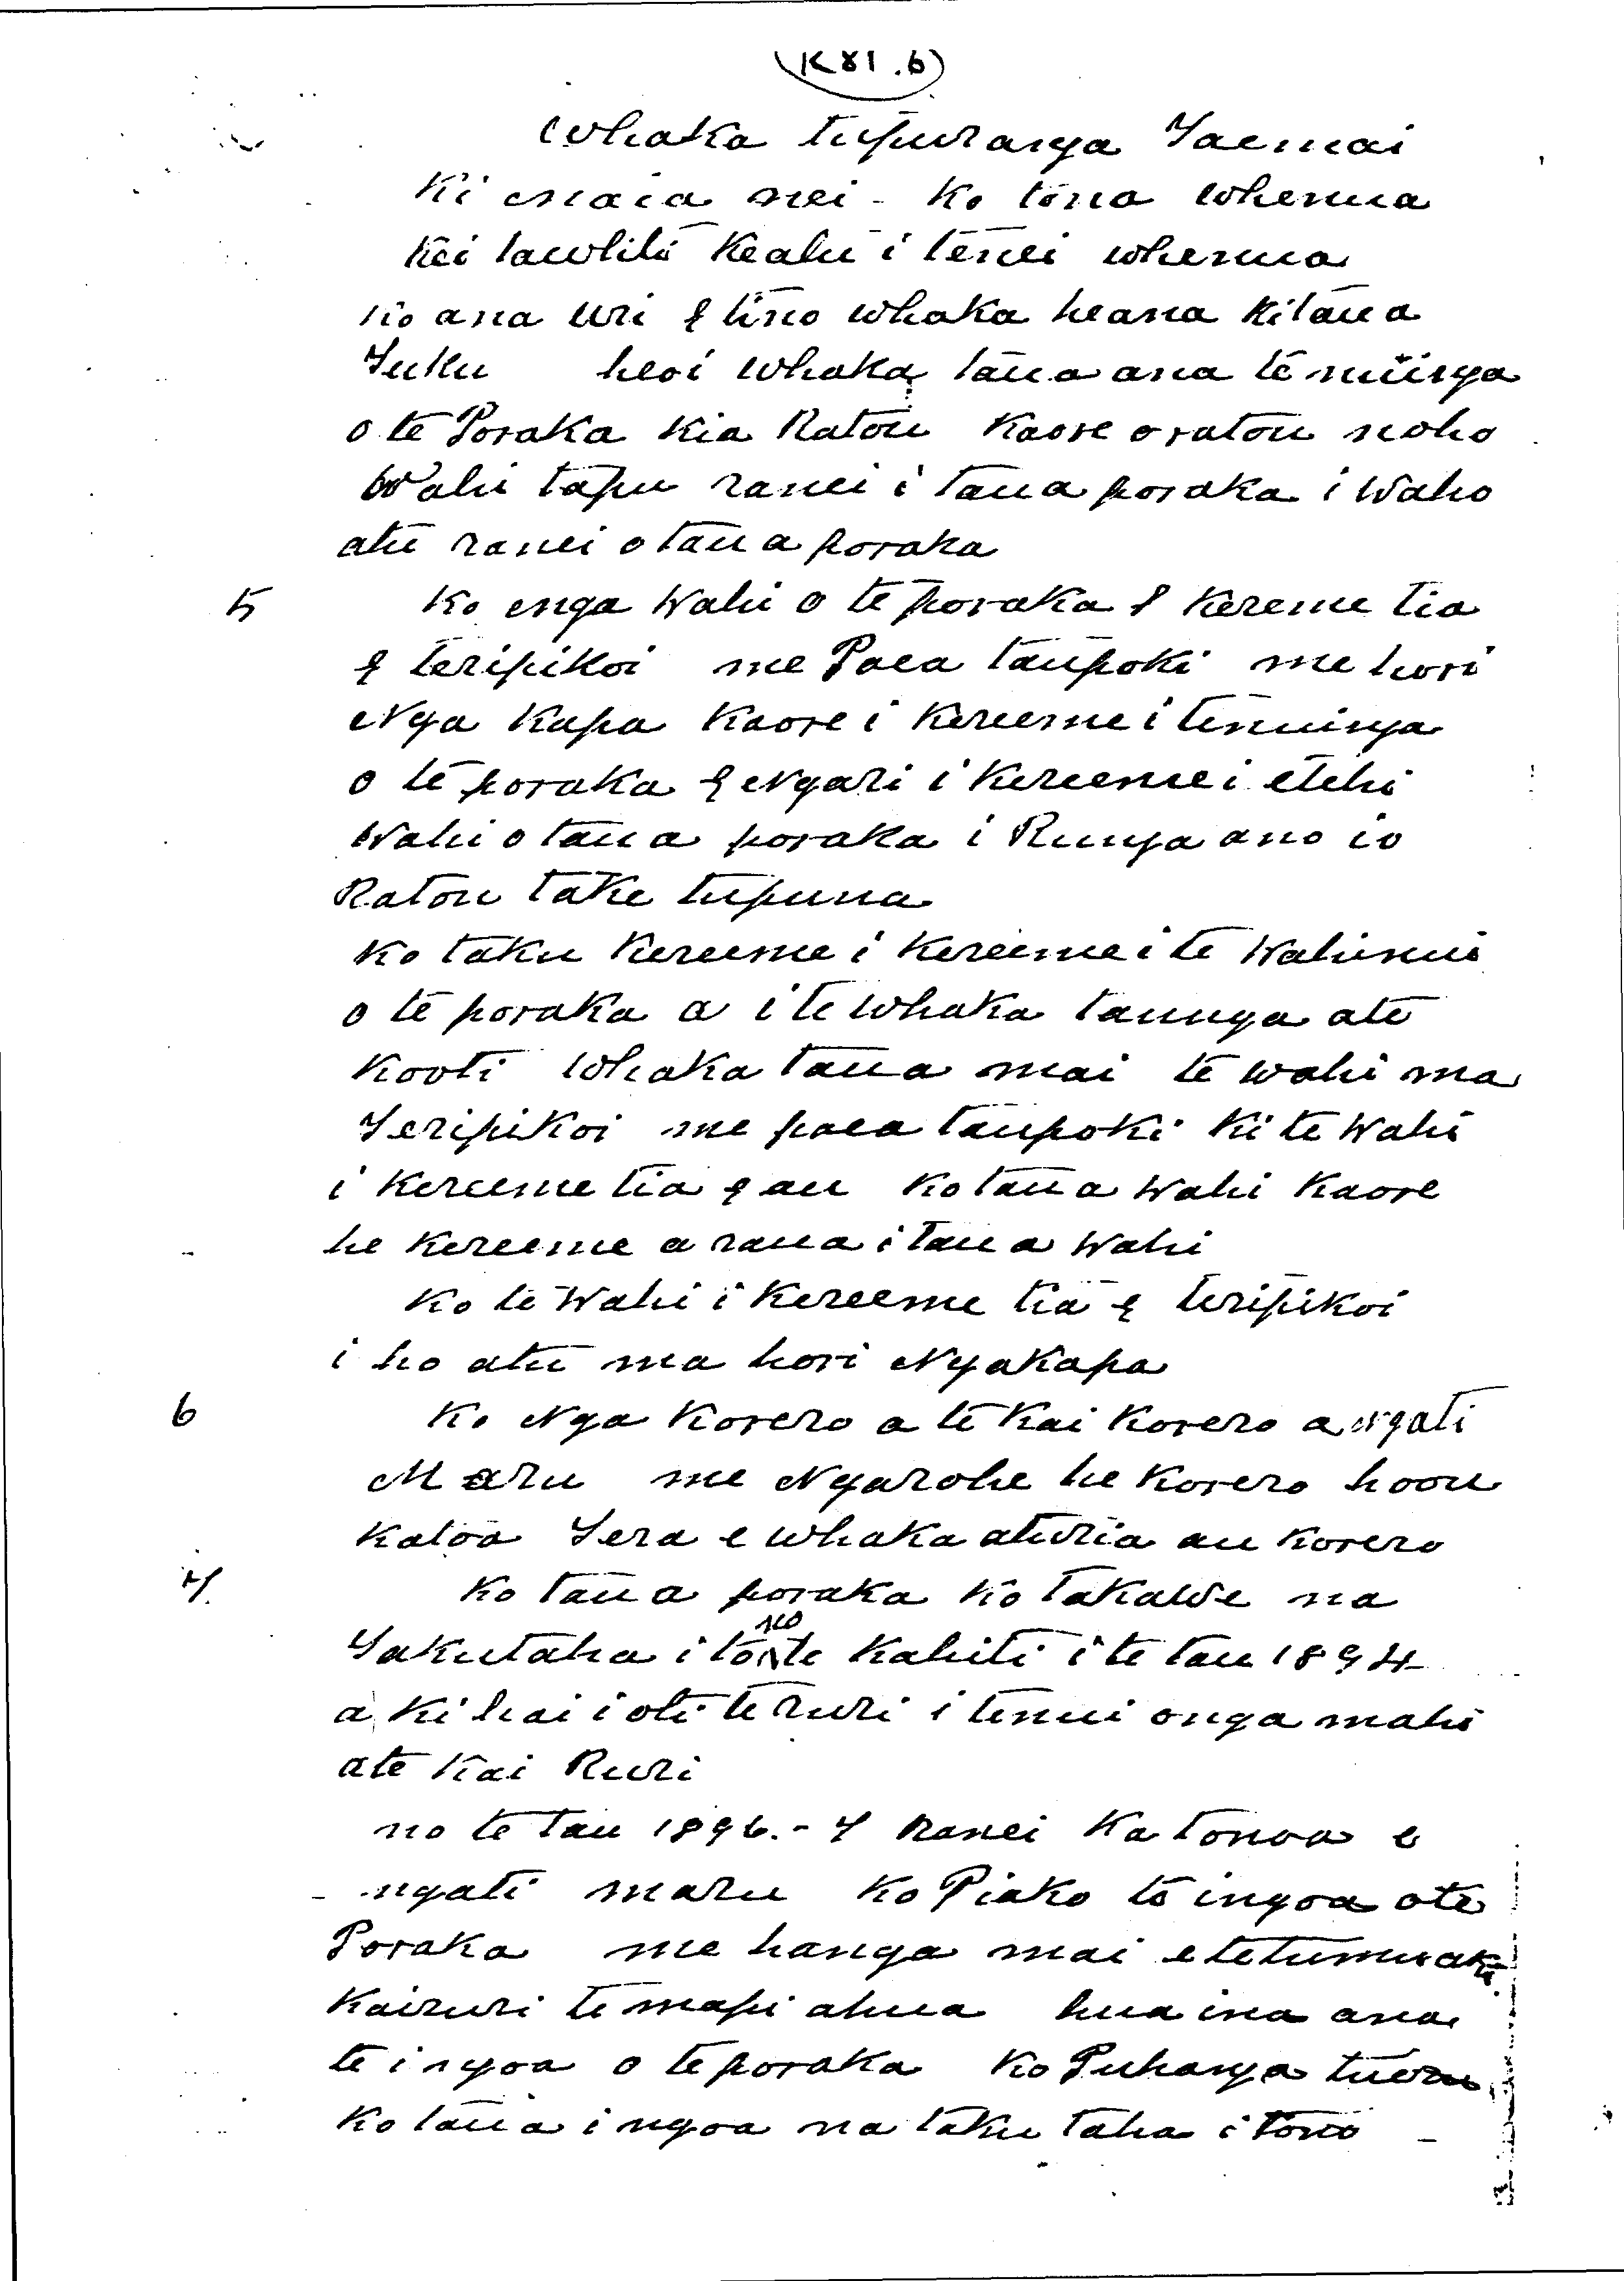 (K81.6)
Whaka tupuranga Taemai
Ki enaia nei - Ko tona whenua
Kei tawhiti Keatu i tenei whenua
Ko ana uri e tino whaka heana Kitaua
Tuku heoi whaka taua ana te nuinga
o te Poraka Kia Ratou Kaore o ratou noho
Wahi tapu ranei i taua poraka i Waho
atu ranei o taua poraka
5 Ko enga Wahi o te poraka i Kereme tia
e teripikoi me Paea taupoki me hori
Nga Kapa Kaore i Kereeme i tenuinga
o te poraka e Ngari i Kereeme i etehi
Wahi o taua poraka i Runga ano i o
Ratou take tupuna
Ko taku Kereeme i Kereeme i te Wahinui
o te poraka a i te Whaka taunga ate
Kooti Whaka taua mai te wahi ma
Teripikoi me paea taupoki Ki te Wahi
i Kereeme tia e au Ko taua Wahi Kaore
he Kereeme a raua i taua Wahi
Ko te Wahi i Kereeme tia e teripikoi
i ho atu ma hori Ngakapa
6 Ko Nga Korero a te Kai Korero a ngati
Maru me Ngarohe he Korero hoou
Katoa Tera e whaka aturia au Korero
7. Ko taua poraka Ko takawe na
Takutaha i tono te Kahiti i te tau 1894
a Ki hai i oti te ruri i tenui onga mahi
ate Kai Ruri
no te tau 1896.-7 Ranei Ka tonoa e
ngati maru Ko Piako te ingoa ote
Poraka me hanga mai e te tumuaki
Kairuri te mapi ahua hua ina ana
te ingoa o te poraka Ko Puhanga
Ko taua ingoa na taku taha i tono